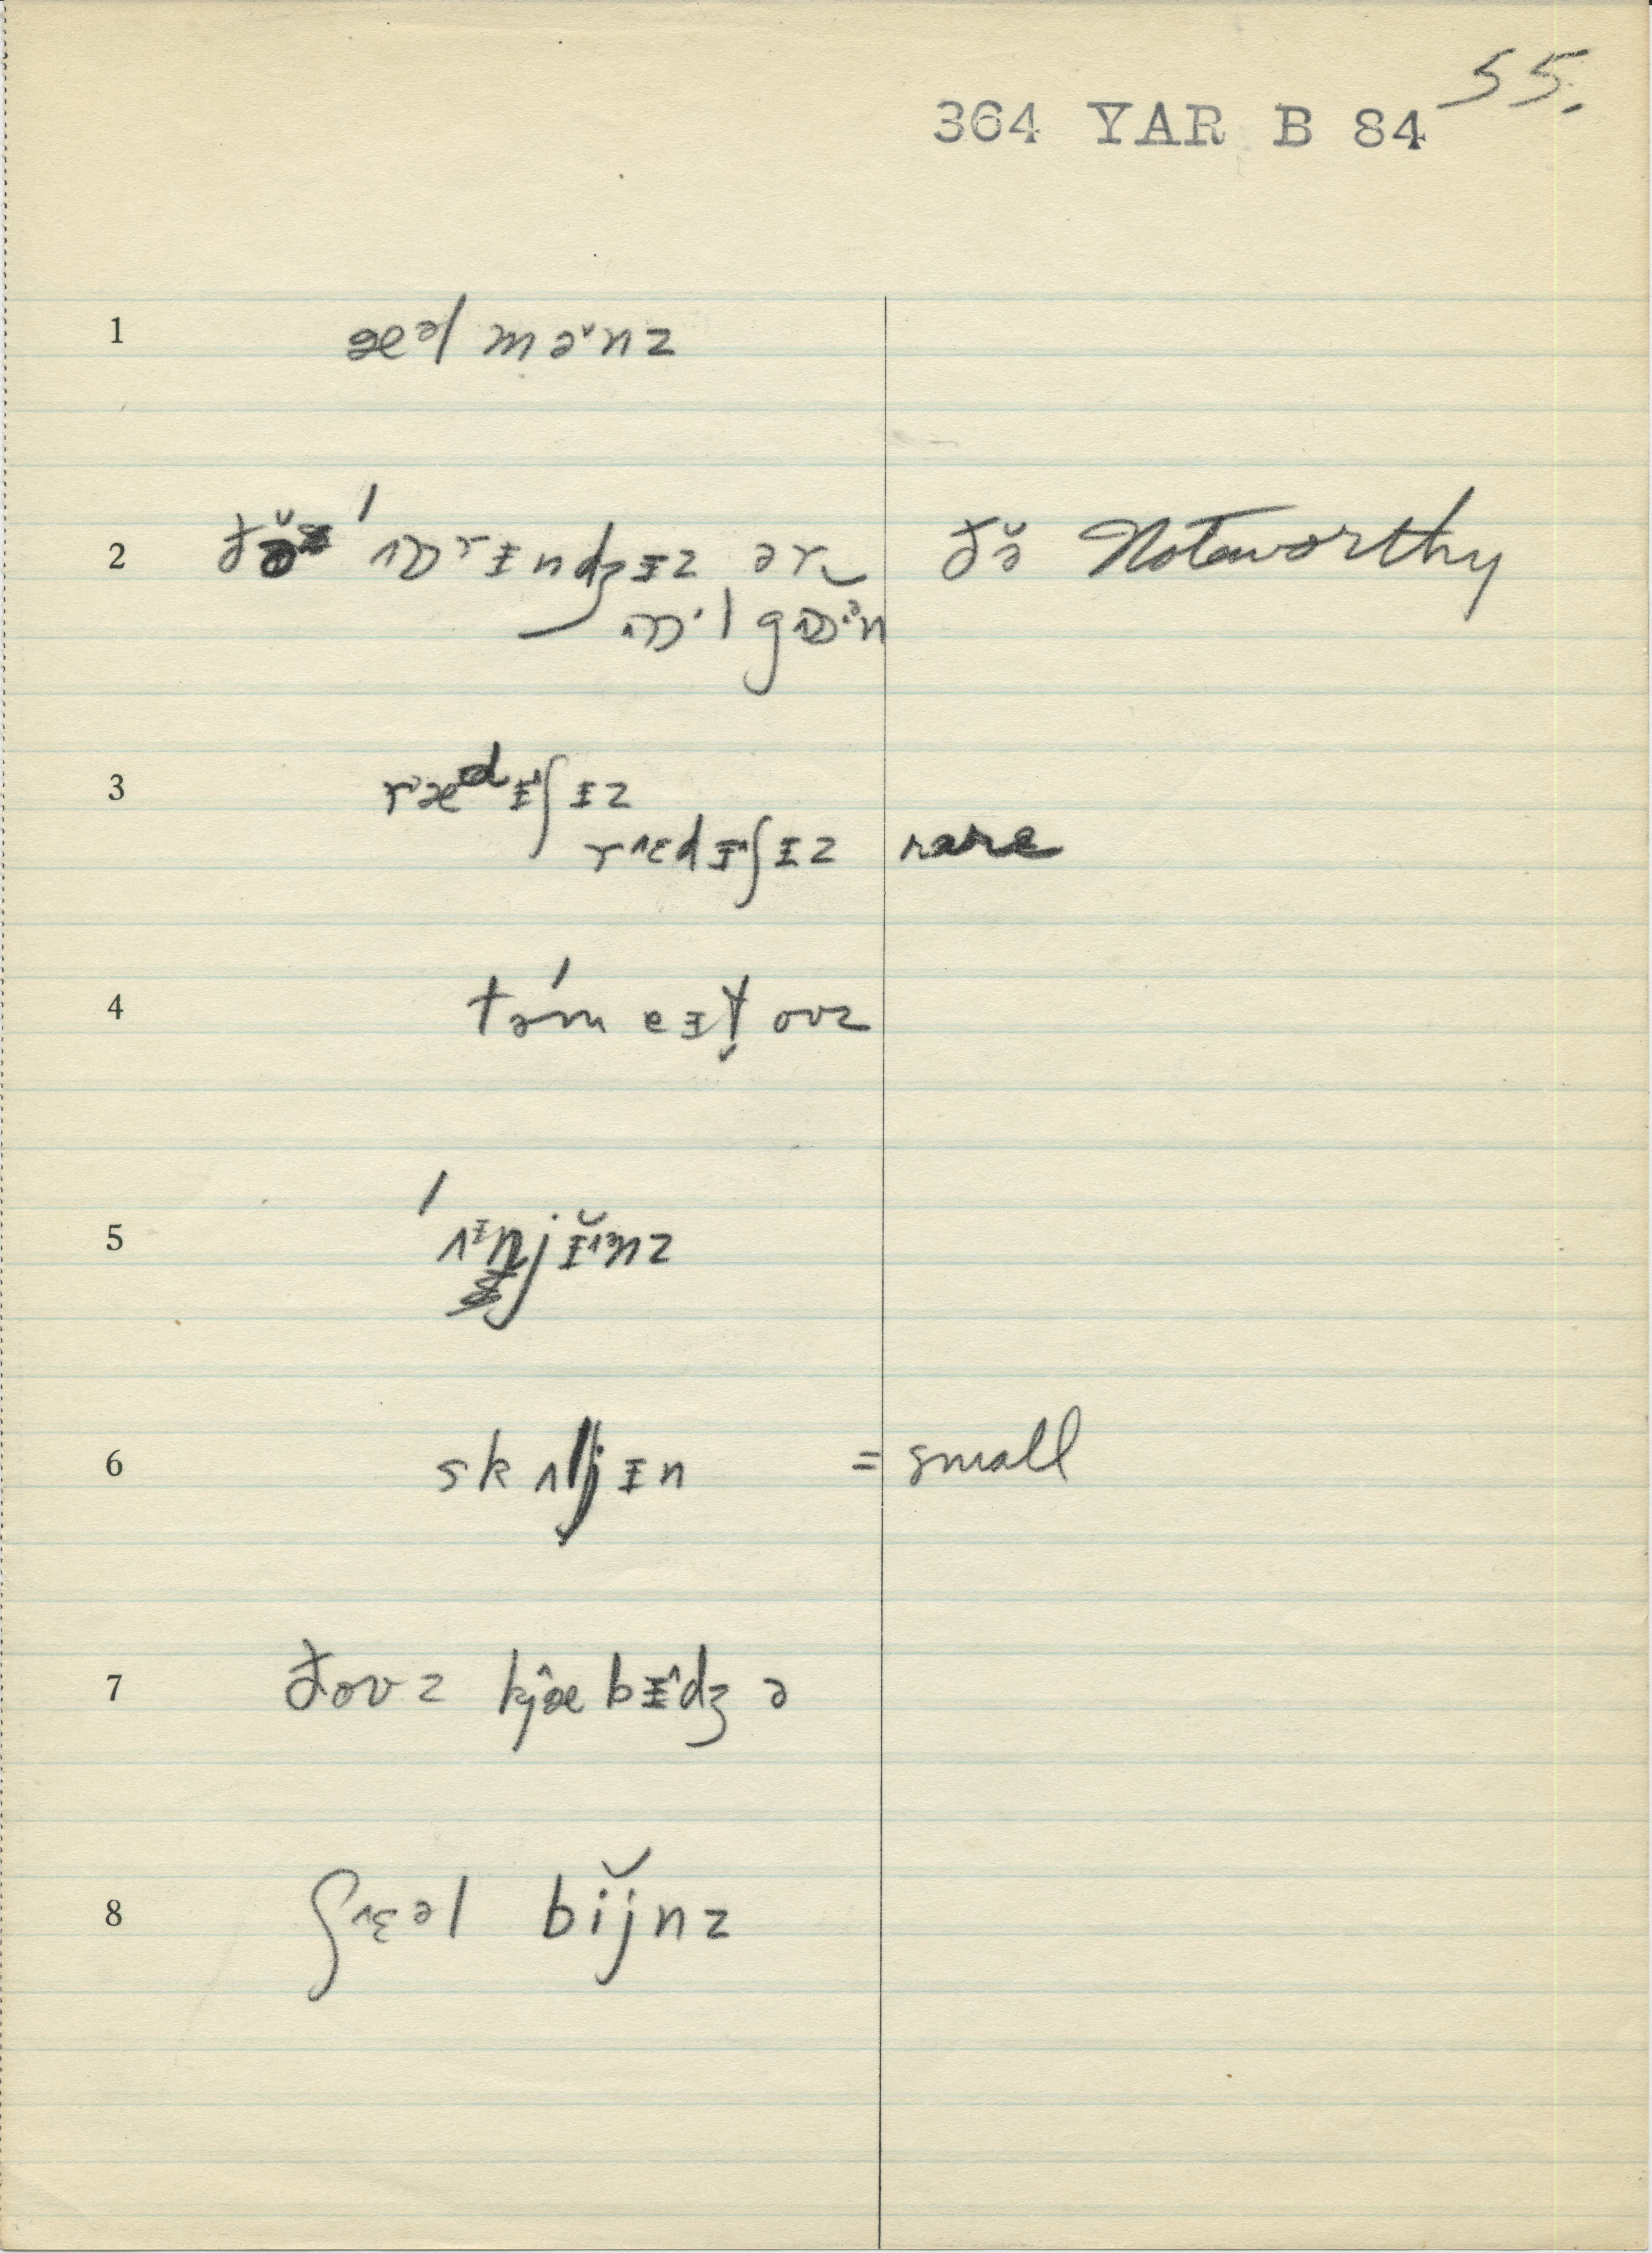 55.
364 YAR B 84
1 æᵊl məˇnz
2 ðə̆ ˈɒrɪndʒɪz ər ɒˑl gɒᵊn ðə̆ Noteworthy
3 rædɪʃɪz
rɛdɪʃɪz rare
4 təmeɪt̬oʊz
5 ˈʌnjɪ̆nz
6 skʌljɪn = small
7 ðoʊz kjæbɪdʒə
8 ʃɛəl bĭjnz